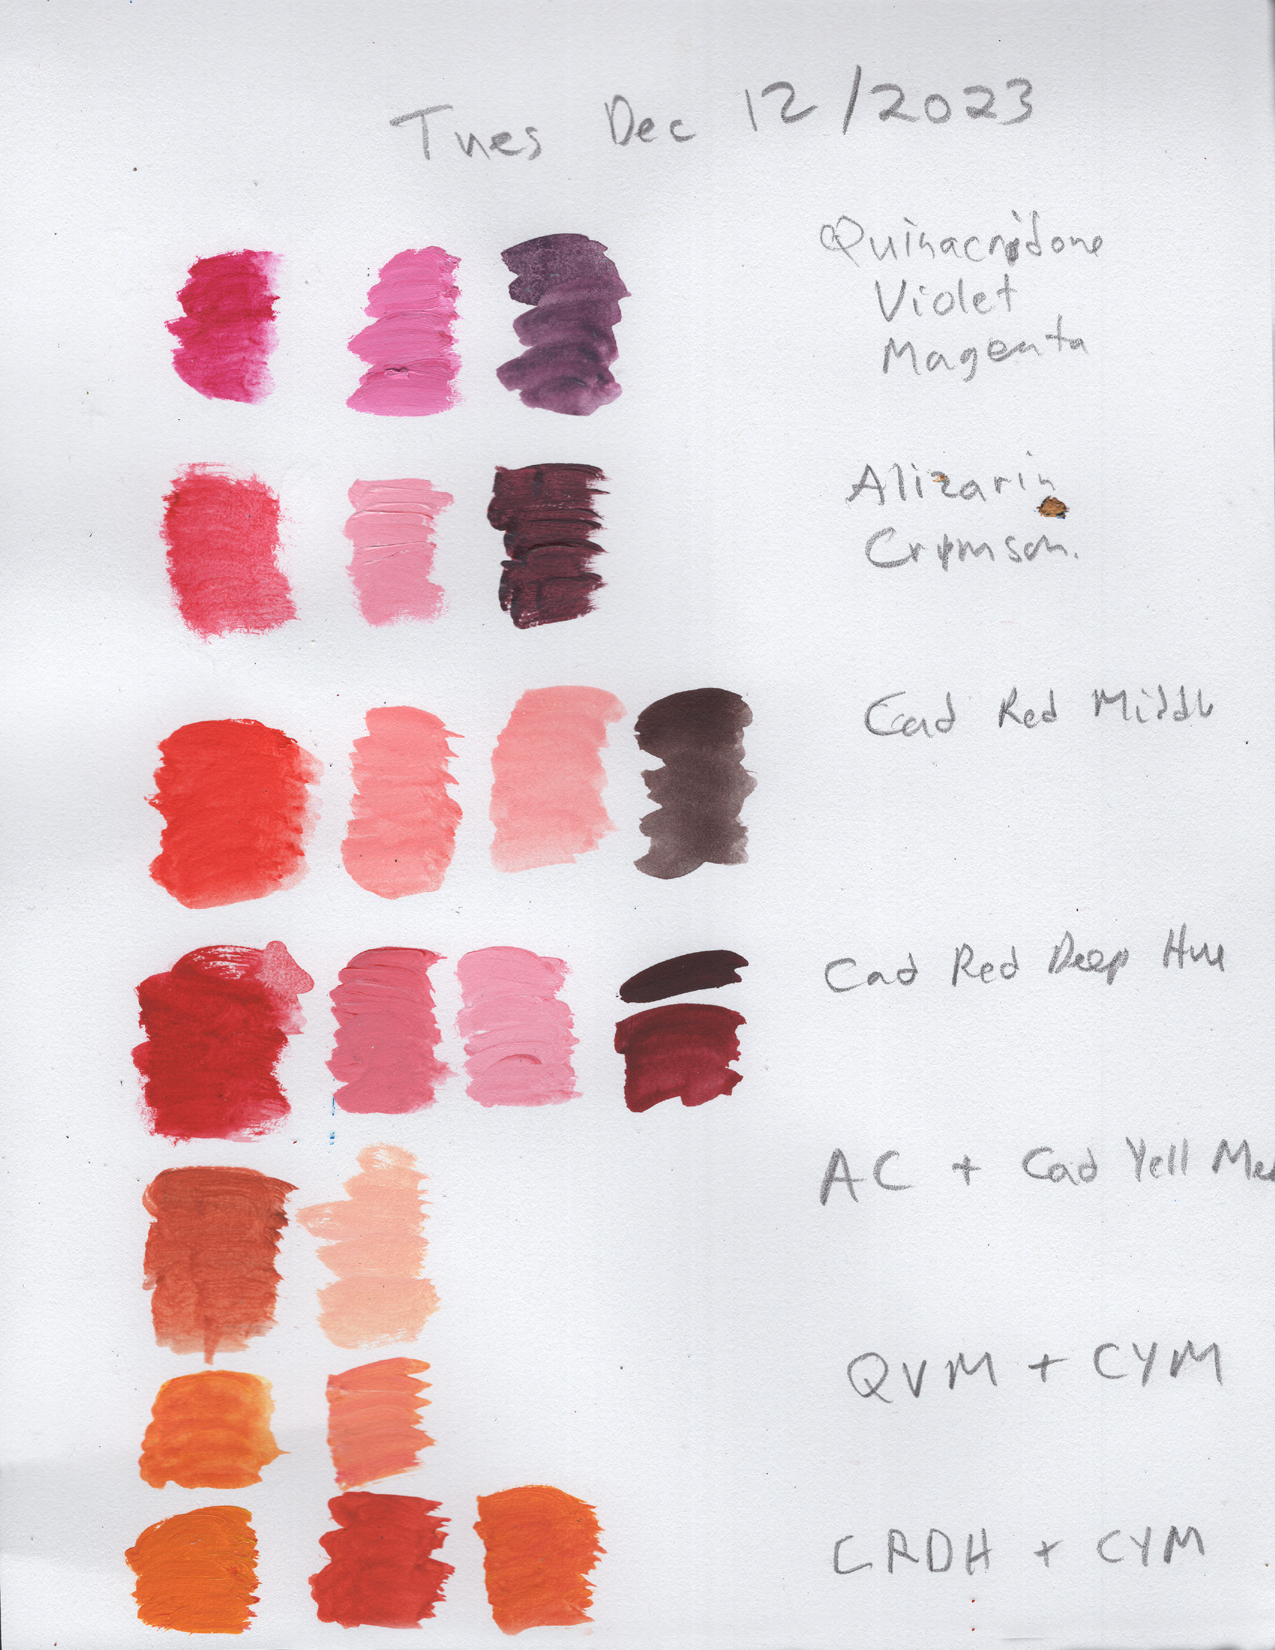 Tues Dec 12/2023
Quinacridone
Violet
Magenta
Alizarin
Crymson.
Cad Red Middl
Cad Red Deep Hue
AC + Cad Yell Med
QVM + CYM
CRDH + CYM